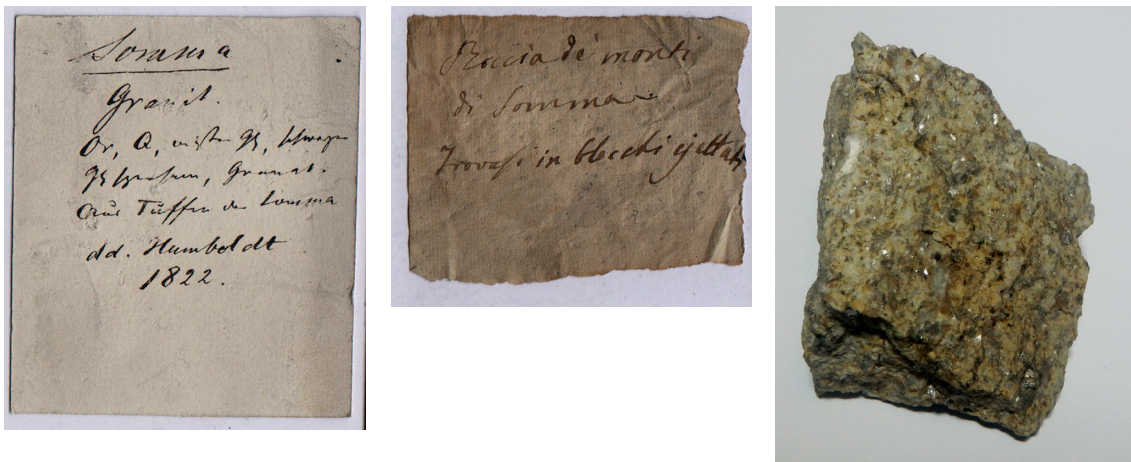 Somma
Granit.
Or, Q, weisser Gl, schwarzer
Gl, Granat.
Aus Tuffen der Somma
dd. Humboldt
1822.
Roccia de' monti
di Somma
Trovasi in blocchi ejettati